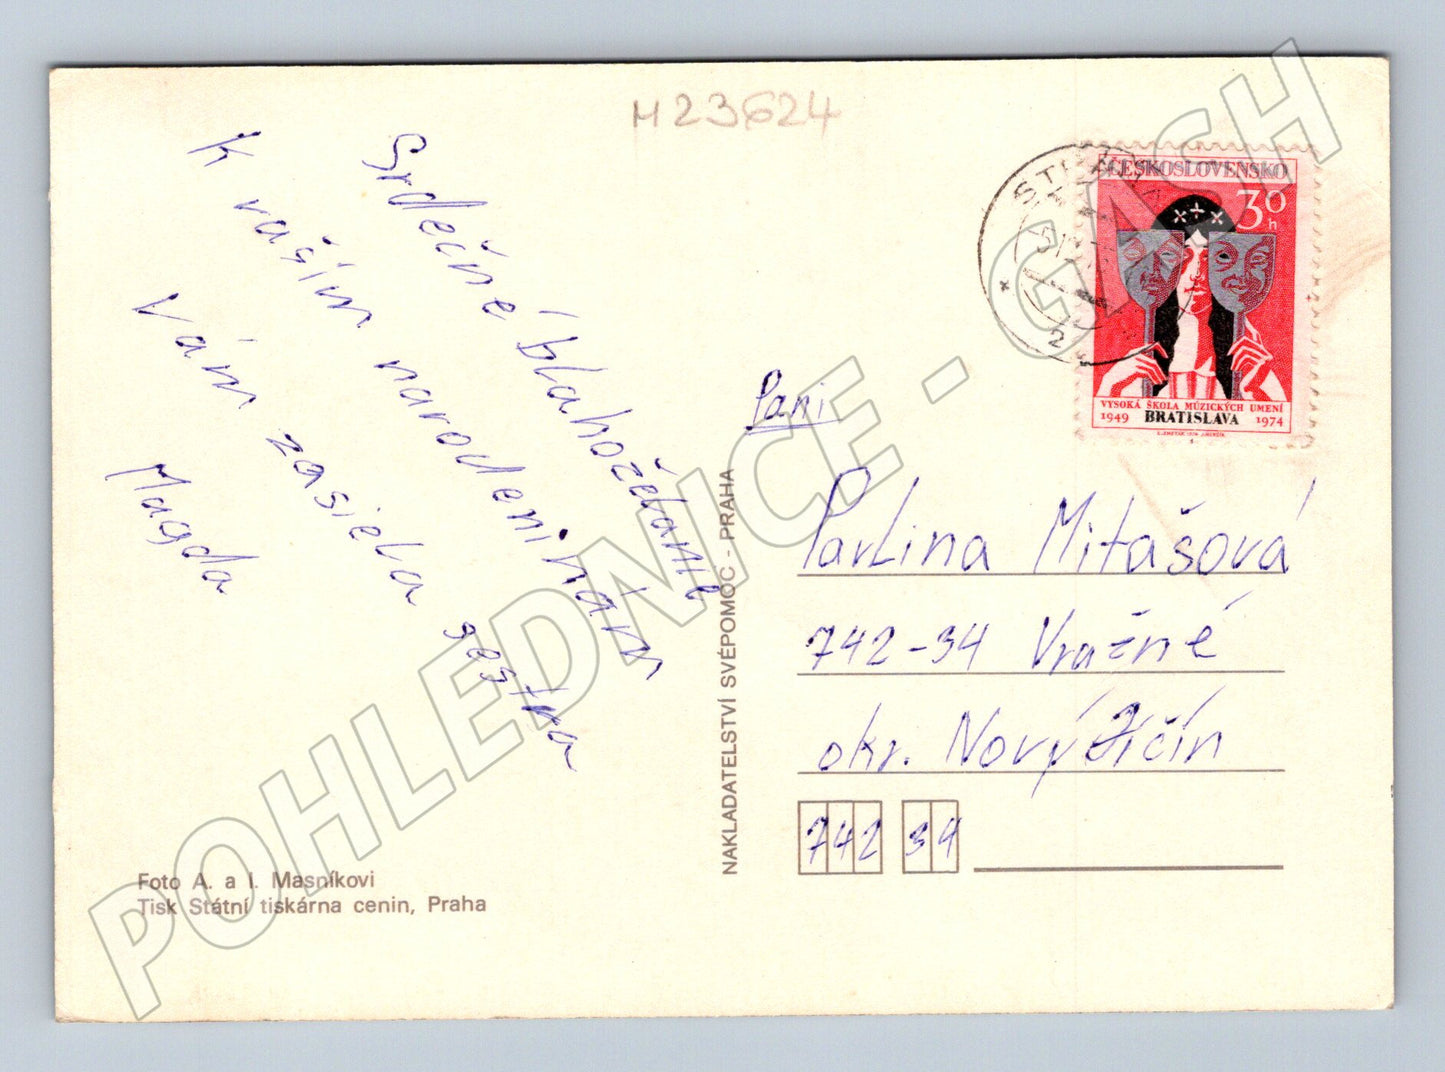 H23624
Srdečné blahoželanie
K vašim narodeninám
Vám zasiela sestra
Magda
Foto A. a I. Masníkovi
Tisk Státní tiskárna cenin, Praha
NAKLADATELSTVÍ SVÉPOMOC - PRAHA
ČESKOSLOVENSKO
30 h
VYSOKÁ ŠKOLA MÚZICKÝCH UMENÍ
1949 BRATISLAVA 1974
Pani
Pavlina Mitašová
742-34 Vražné
okr. Nový Jičín
742 34
POHLEDNICE - GASH